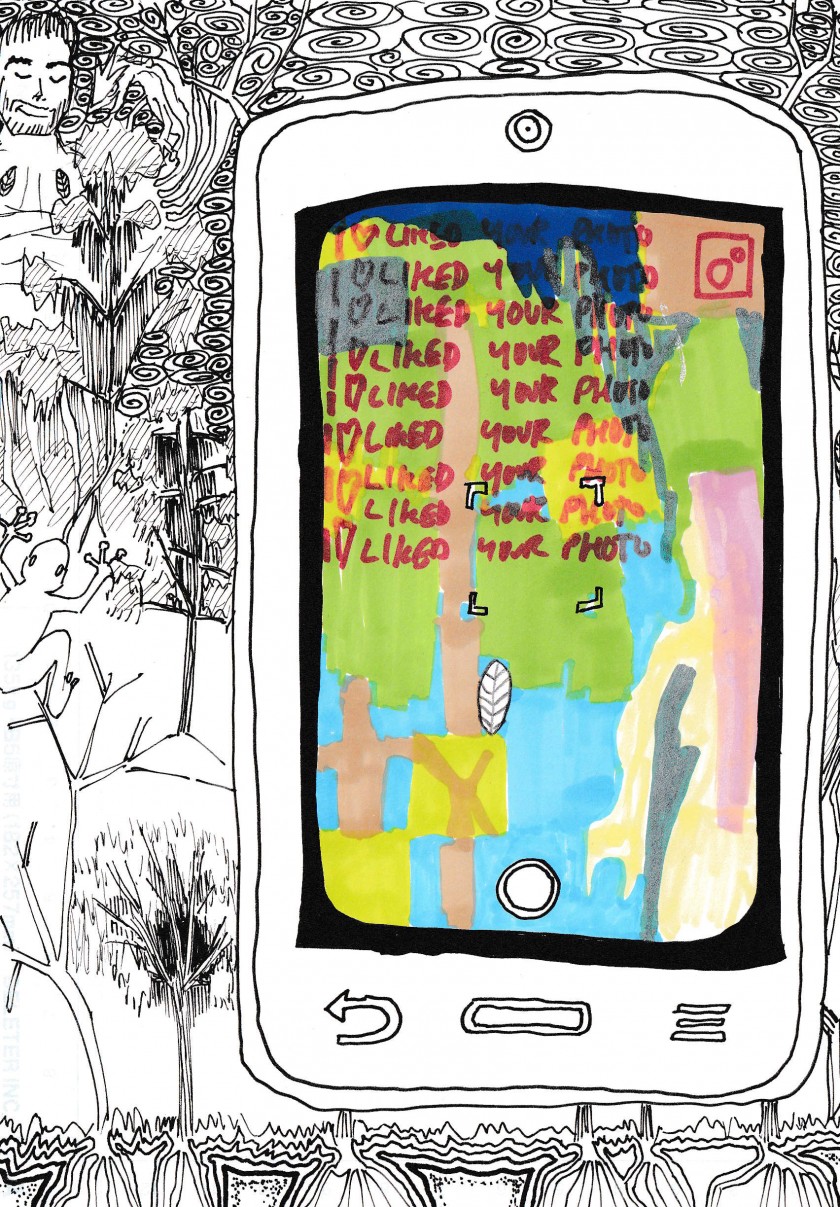 I ♡ LIKED YOUR PHOTO
I ♡ LIKED YOUR PHOTO
I ♡ LIKED YOUR PHOTO
I ♡ LIKED YOUR PHOTO
I ♡ LIKED YOUR PHOTO
I ♡ LIKED YOUR PHOTO
I ♡ LIKED YOUR PHOTO
LIKED YOUR PHOTO
I ♡ LIKED YOUR PHOTO